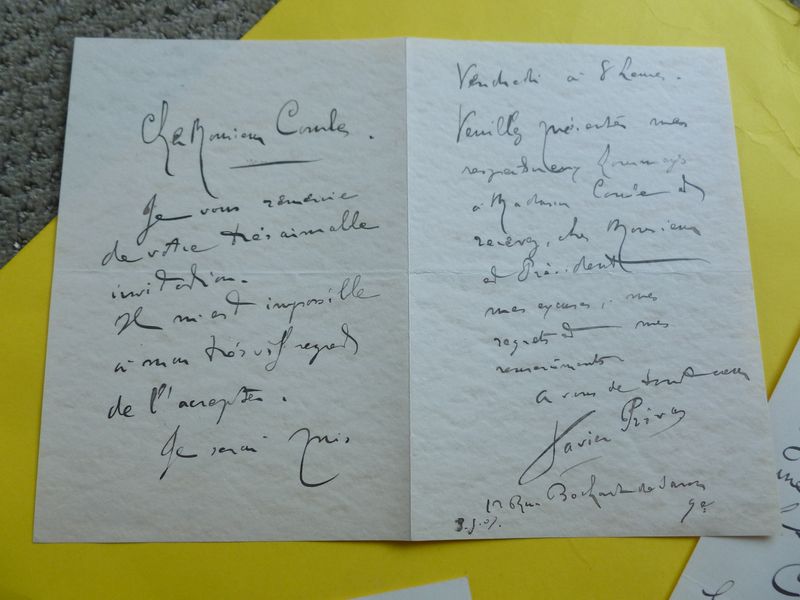 Cher Monsieur Combes.
Je vous remercie
de votre très aimable
invitation.
Il m'est impossible
à mon très vif regret
de l'accepter.
Je serai pris
Vendredi à 8 heures.
Veuillez présenter mes
respectueux hommages
à Madame et
recevez, cher Monsieur
et Président
mes excuses, mes
regrets et mes
remerciements
à vous de tout cœur
Xavier Privas
Rue Bochart de Saron
9e